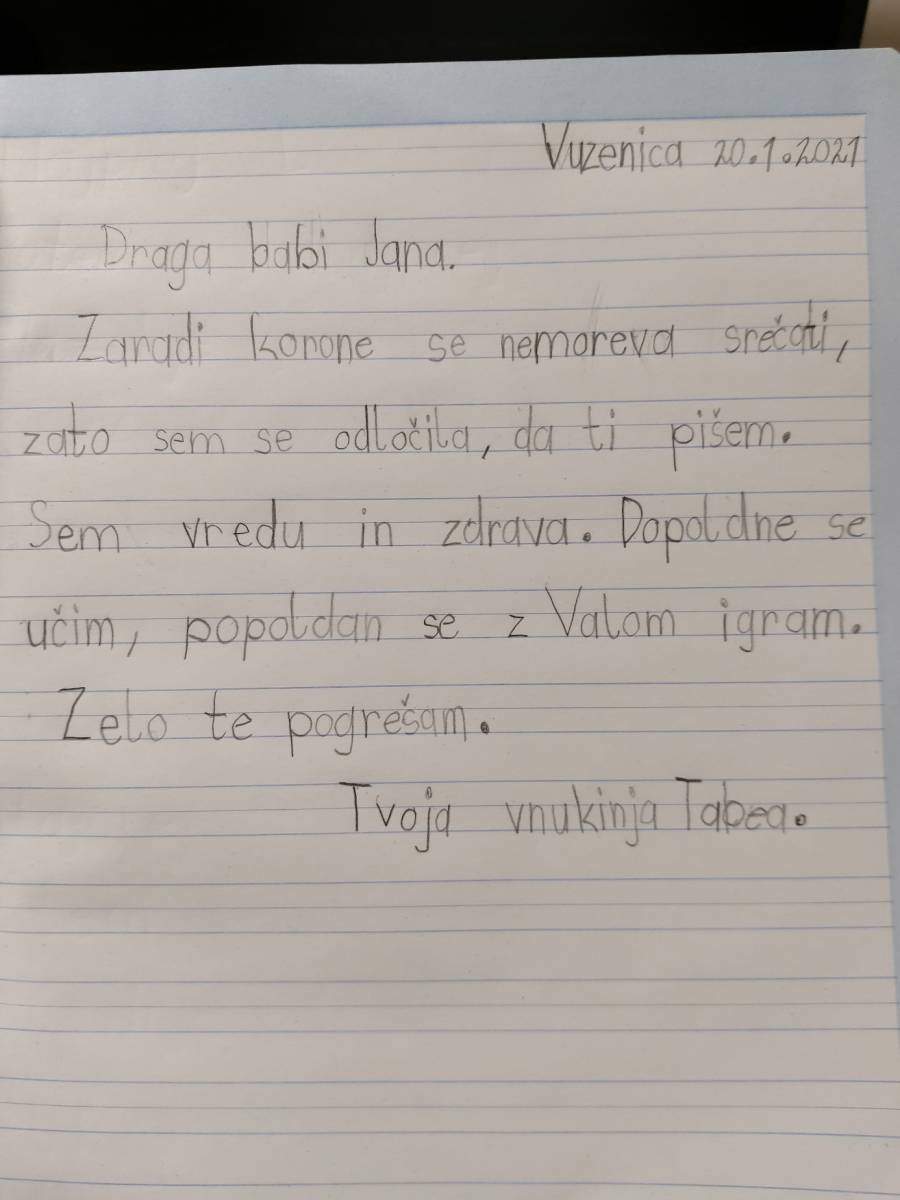 Vuzenica 20.1.2021
Draga babi Jana.
Zaradi korone se nemoreva srečati,
zato sem se odločila, da ti pišem.
Sem vredu in zdrava. Dopoldne se
učim, popoldan se z Valom igram.
Zelo te pogrešam.
Tvoja vnukinja Tabea.